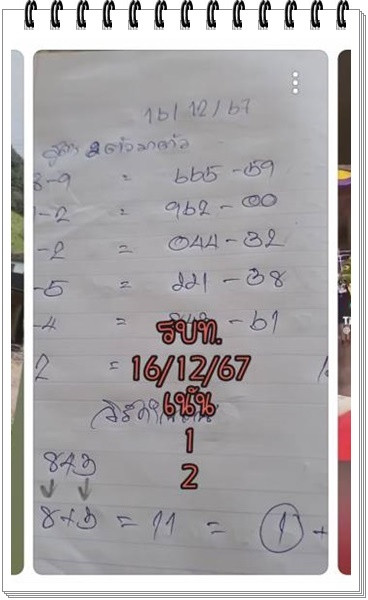 16/12/67
สูตร 2 ตัวมาตัว
8-9 = 665-59
1-2 = 962-00
-2 = 044-32
-5 = 221-38
-4 = -61
2 =
รบท.
16/12/67
เน้น
1
2
843
8+3 = 11 = 1 +